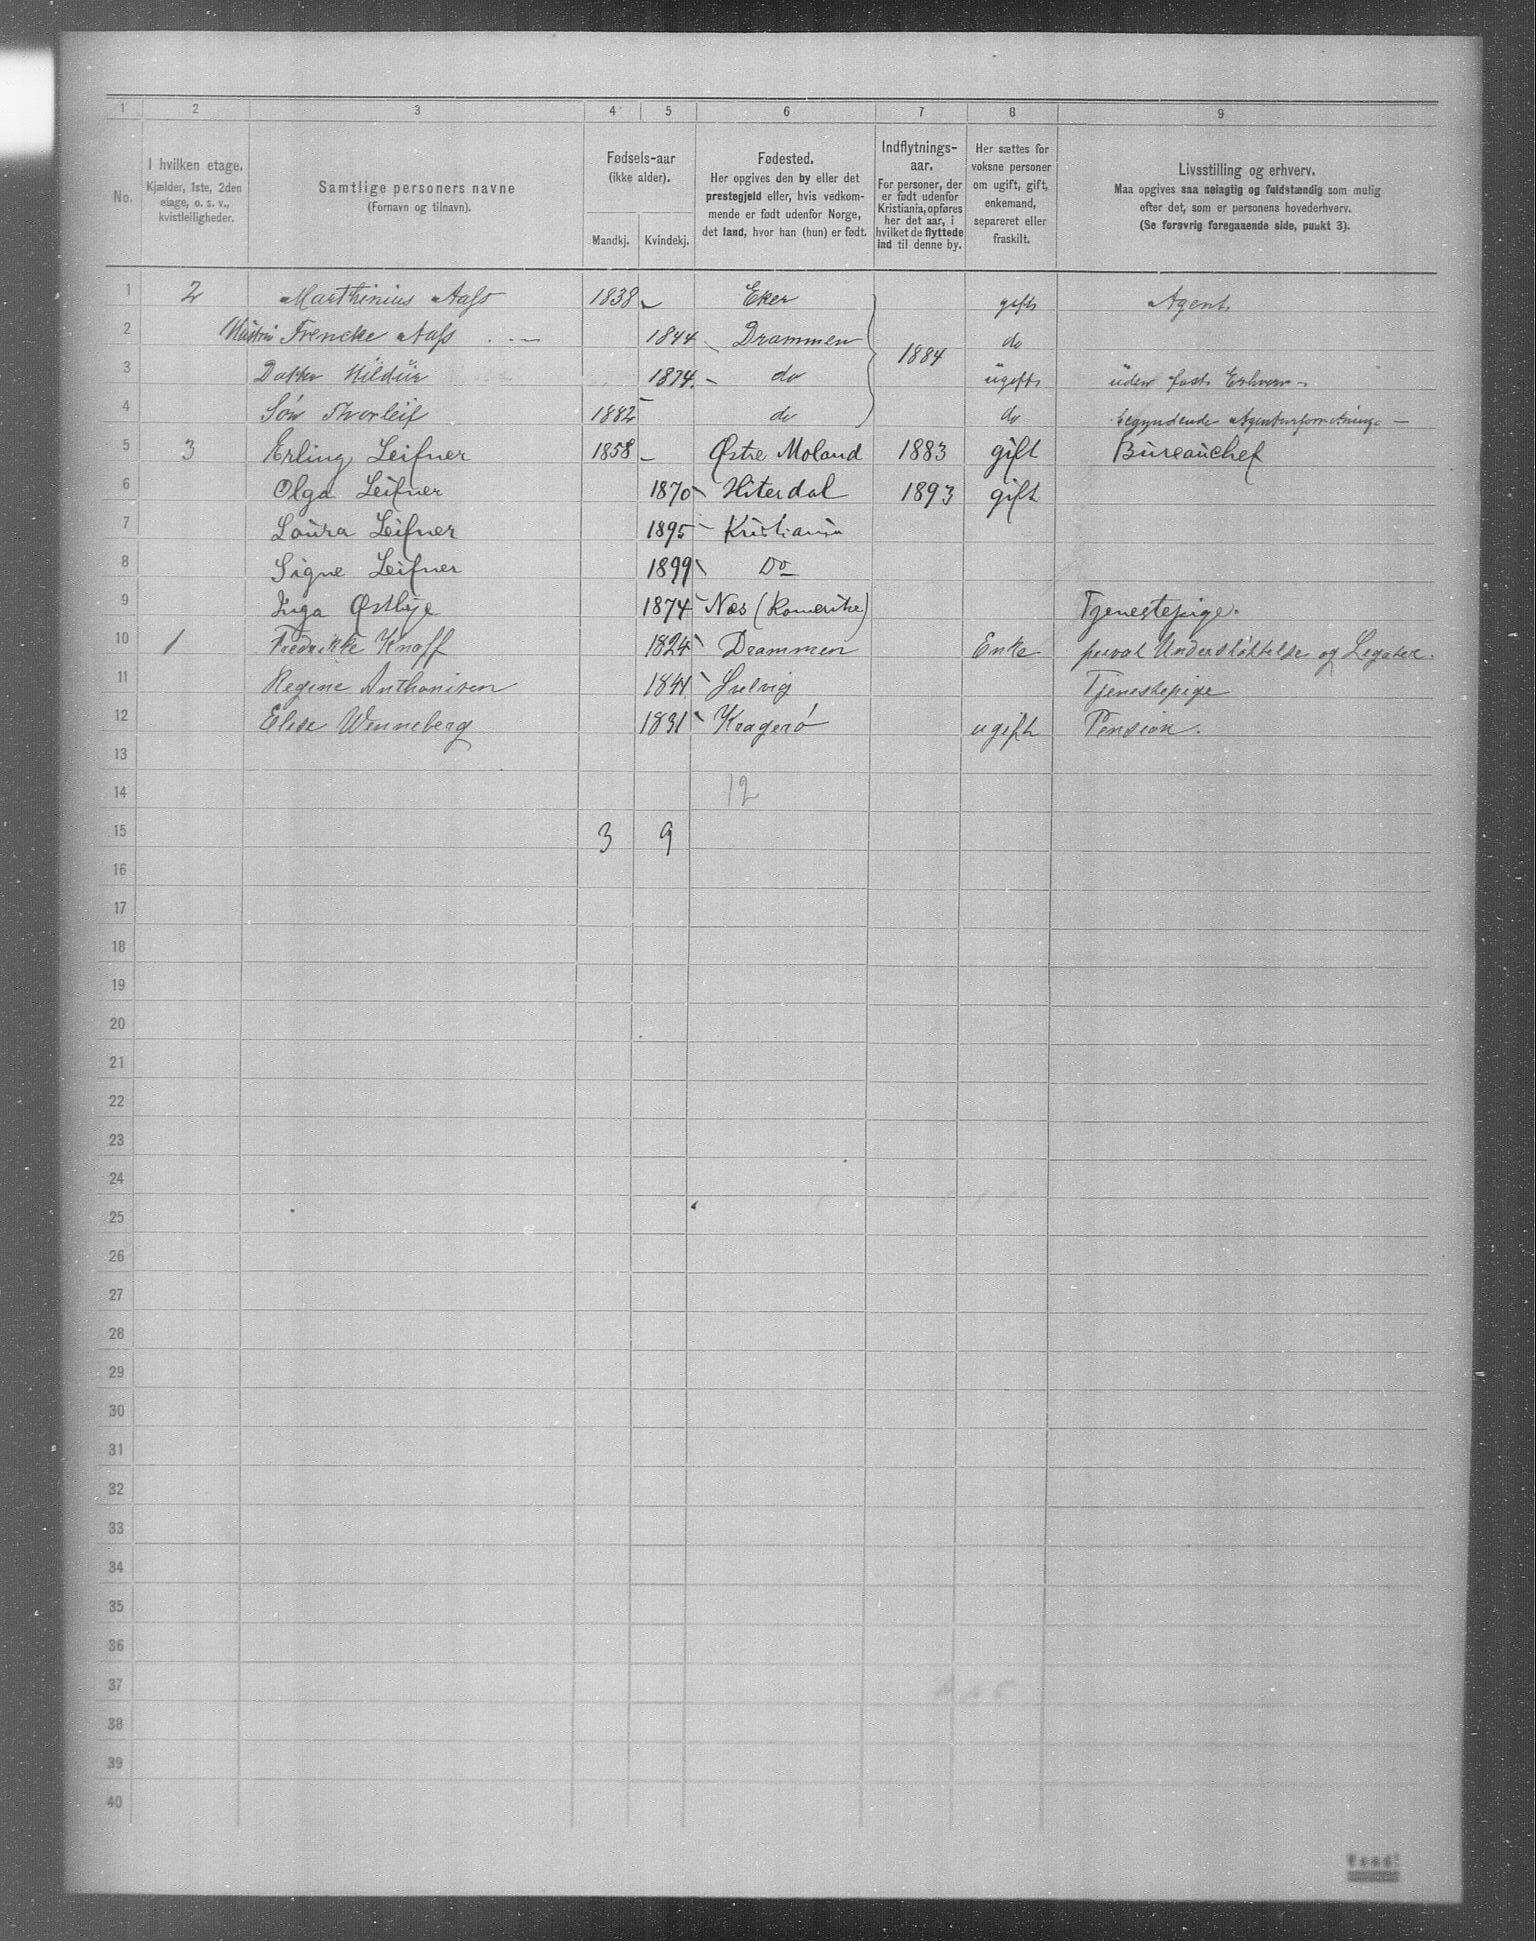 1 2 3 4 5 6 7 8 9
No.
I hvilken etage.
Kjælder, 1ste, 2den
etage, o. s. v.,
kvistleiligheder.
Samtlige personers navne
(Fornavn og tilnavn).
Fødsels-aar
(ikke alder).
Mandkj. Kvindekj.
Fødested.
Her opgives den by eller det
prestegjeld eller, hvis vedkom-
mende er født udenfor Norge,
det land, hvor han (hun) er født.
Indflytnings-
aar.
For personer, der
er født udenfor
Kristiania, opføres
her det aar, i
hvilket de flyttede
ind til denne by.
Her sættes for
voksne personer
om ugift, gift,
enkemand,
separeret eller
fraskilt.
Livsstilling og erhverv.
Maa opgives saa nøiagtig og fuldstændig som mulig
efter det, som er personens hovederhverv.
(Se forøvrig foregaaende side, punkt 3).
1 2 Marthinius Aass 1838 - Eker gift Agent
2 Hustru Frencke Aass 1844 Drammen 1884 do
3 Datter Hildur 1874 - do ugift uden fast Erhverv -
4 Søn Thorleif 1882 - do do begyndende Agenturforretning -
5 3 Erling Leifner 1858 - Østre Moland 1883 gift Bureauchef
6 Olga Leifner 1870 Hiterdal 1893 gift
7 Laura Leifner 1895 Kristiania
8 Signe Leifner 1899 Do
9 Inga Østbye 1874 Næs (Romerike) Tjenestepige.
10 1 Fredrikke Knoff 1824 Drammen Enke privat Understøttelse og Legater.
11 Regine Anthonisen 1841 Svelvig Tjenestepige
12 Elise Wenneberg 1831 Kragerø ugift Pension.
13
14 12
15 3 9
16
17
18
19
20
21
22
23
24
25
26
27
28
29
30
31
32
33
34
35
36
37
38
39
40
Vend!